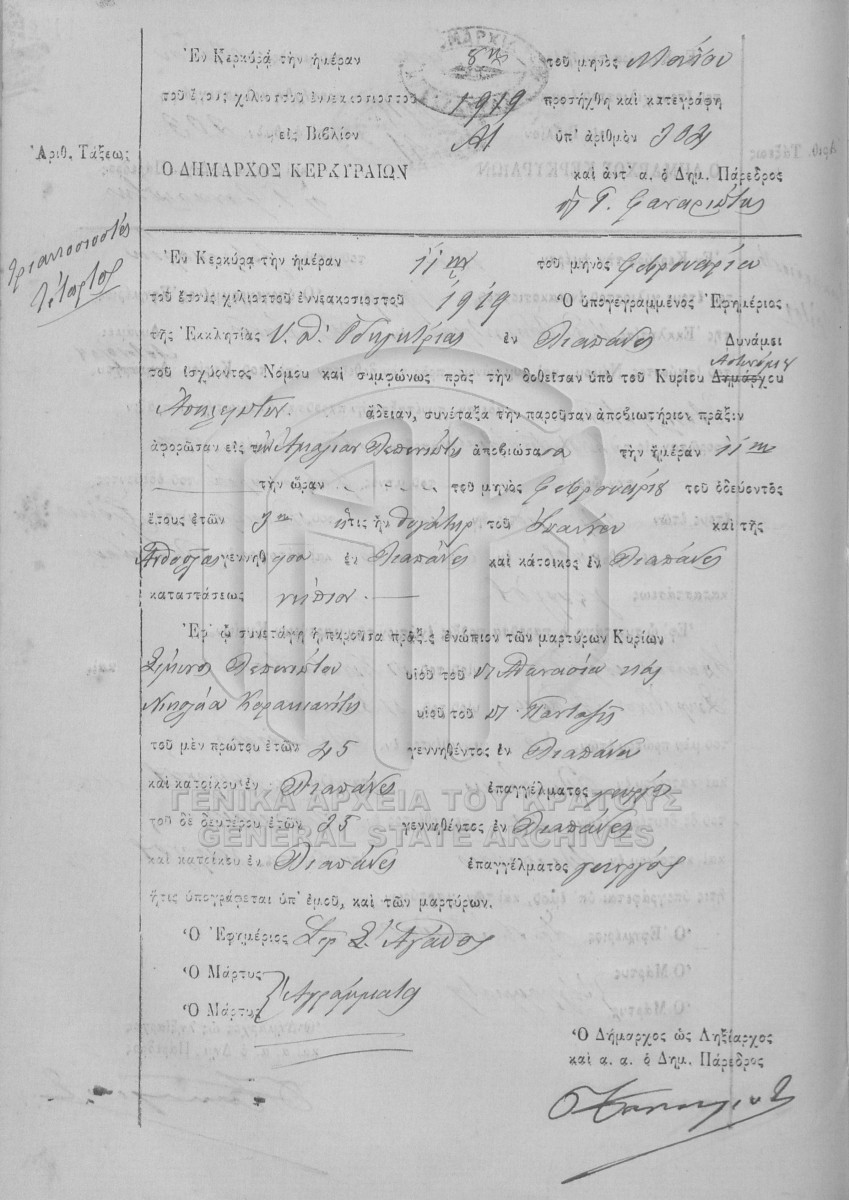 Ἐν Κερκύρᾳ τὴν ἡμέραν 8ην τοῦ μηνὸς Μαΐου
τοῦ ἔτους χιλιοστοῦ ἐννεακοσιοστοῦ 1919 προσήχθη καὶ κατεγράφη
εἰς Βιβλίον Α1 ὑπ' ἀριθμὸν 304
Ἀριθ. Τάξεως
Ο ΔΗΜΑΡΧΟΣ ΚΕΡΚΥΡΑΙΩΝ καὶ ἀντ' α. ὁ Δημ. Πάρεδρος
Γ. Φαναριώτης
τριακοσιοστὸς
τέταρτος
Ἐν Κερκύρᾳ τὴν ἡμέραν 11ην τοῦ μηνὸς Φεβρουαρίου
τοῦ ἔτους χιλιοστοῦ ἐννεακοσιοστοῦ 1919 Ὁ ὑπογεγραμμένος Ἐφημέριος
τῆς Ἐκκλησίας Ὁδηγητρίας ἐν Λιαπάδες Δυνάμει
τοῦ ἰσχύοντος Νόμου καὶ συμφώνως πρὸς τὴν δοθεῖσαν ὑπὸ τοῦ Κυρίου Δημάρχου Ἀστυνόμου
ἄδειαν, συνέταξα τὴν παροῦσαν ἀποβιωτήριον πρᾶξιν
ἀφορῶσαν εἰς τὴν Ἀμαλίαν Λεπενιώτη ἀποβιώσασα τὴν ἡμέραν 11ην
τὴν ὥραν τοῦ μηνὸς Φεβρουαρίου τοῦ ὁδεύοντος
ἔτους ἐτῶν ἥτις ἦν θυγάτηρ τοῦ Ἰωάννου καὶ τῆς
γεννηθεῖσα ἐν Λιαπάδες καὶ κάτοικος ἐν Λιαπάδες
καταστάσεως νήπιον
Ἐφ' ᾧ συνετάγη ἡ παροῦσα πρᾶξις ἐνώπιον τῶν μαρτύρων Κυρίων
Λεπενιώτου υἱοῦ τοῦ Ἀθανασίου
Νικολάου Κορακιανίτη υἱοῦ τοῦ
τοῦ μὲν πρώτου ἐτῶν 45 γεννηθέντος ἐν Λιαπάδες
καὶ κατοίκου ἐν Λιαπάδες ἐπαγγέλματος γεωργός
ΓΕΝΙΚΑ ΑΡΧΕΙΑ ΤΟΥ ΚΡΑΤΟΥΣ
τοῦ δὲ δευτέρου ἐτῶν 35 γεννηθέντος ἐν Λιαπάδες
GENERAL STATE ARCHIVES
καὶ κατοίκου ἐν Λιαπάδες ἐπαγγέλματος γεωργός
ἥτις ὑπογράφεται ὑπ' ἐμοῦ, καὶ τῶν μαρτύρων.
Ὁ Ἐφημέριος Ἄγαθος
Ὁ Μάρτυς
Ἀγράμματοι
Ὁ Μάρτυς
Ὁ Δήμαρχος ὡς Ληξίαρχος
καὶ α. α. ὁ Δημ. Πάρεδρος